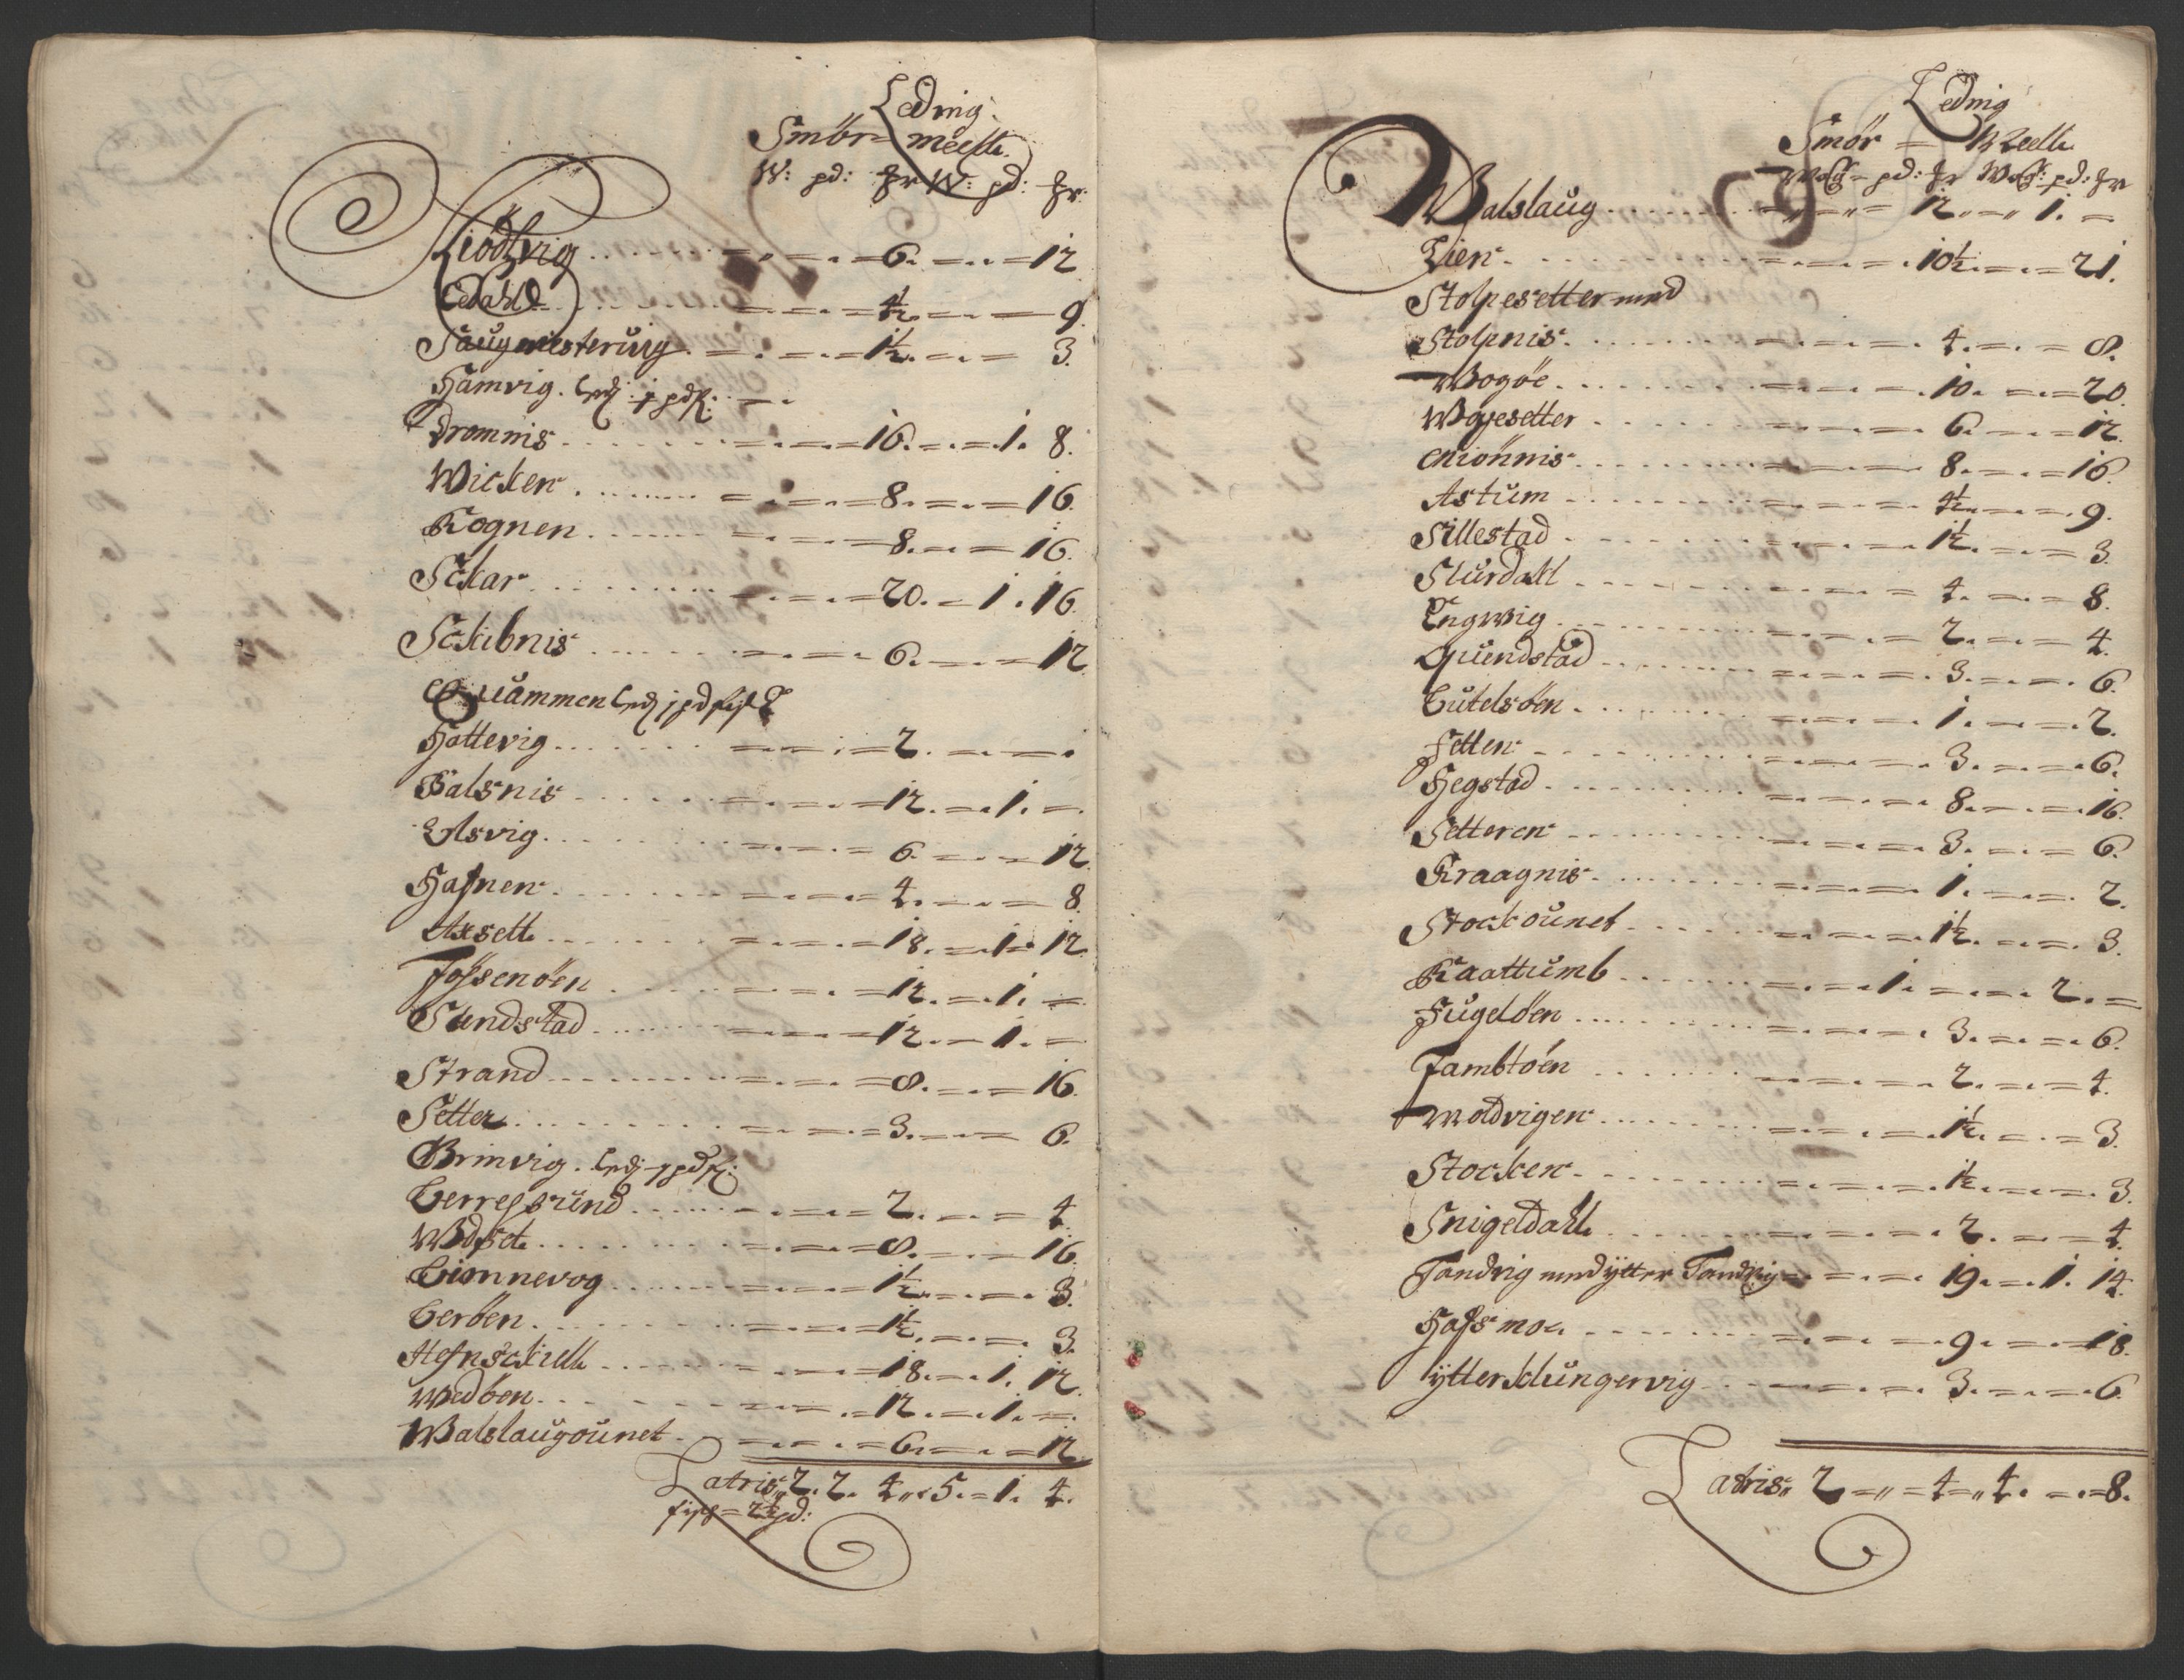 Leding
Smör = meelle
W: pd: Hr W: pd: Hr
Liödhvig . . . . = „ = . = 6. = . . = 12
Ledahl . . = . . = . = 4½ = . = 9.
Saugmesteruig . = . = . = 1½. = . = 3.
Hamvig. Led: j pd f: = .
Dromnis . . . . . = . = . = 16. = . = 1. 8.
Wicken . . . . . = . = . = 8. = . = 16.
Rognen . . . . . = . = . = 8. = . = 16.
Sckar . . . . . = . = . = 20. = 1. 16.
Sckibnis . . . . = . = . 6. = . = 12
Quammen Led j pd fisk
Hattevig . . . . = . = . = 2. = . = .
Balsnis . . . . = . = . = 12. = . 1. =.
Ulsvig . . . . = . = . = 6. = . = 12
Hafnen . . . . = . = . = 4. = . = 8.
Axsett . . . . = . = . = 18. = 1. 12
Jössenöen . . . = . = . = 12. = 1. =
Sundstad . . . = . = . = 12. = 1. =
Strand . . . . = . = . = 8. = . = 16.
Setter . . . . = . = . = 3. = . = 6.
Grinvig. Led j pd f:
Lerregrund . . . = . = . = 2. = . = 4.
Wedset . . . . = . = . = 8. = . = 16.
Limnevog . . . = . = . = 1½. = . = 3.
Leröen . . . . = . = . = 1½. = . = 3.
Hefnsckiell . . . = . = . = 18. = . 1. 12.
Wedöen . . . . = . = . = 12. = . 1. =.
Walslaugounet . = . = . = 6. = . = 12
Latris „ 2. 2. 4 „ 5. = 1. 4.
fisk = 2½ pd:
Lednig
Smör = Meelle
Wog = pd: Hr Wog: pd: Hr
Walslaug . . . . = „ = „ = 12 „ = „ 1. =
Lien . . . . = . = . = . 10½ = . = 21.
Stolpesetter med
Stolpnis . . . . = . = . = . 4. = . = 8.
Wogöe . . . . = . = . = . 10. = . = 20.
Wogesetter . . . = . = . = . 6. = . = 12.
Miönnis . . . . = . = . = 8. = . = 16.
Astum . . . . = . = . = 4½ = . = . 9.
Sillestad . . . . = . = . = 1½. = . = 3.
Slurdahl . . . . = . = . = 4. = . = 8.
Engwig . . . . = . = . = 2. = . = 4.
Grundstad . . . = . = . = 3. = . = . 6.
Lutelsöen . . . . = . = . = 1. = . = . 2.
Fetten . . . . = . = . = . 3. = . = . 6.
Hegstad . . . . = . = . = . 8. = . = . 16.
Setteren . . . . = . = . = . 3. = . = 6.
Kraagnis . . . . = . = . = . 1. = . = . 2.
Stockounet . . . = . = . = . 1½. = . = . 3.
Kaattumb . . . . = . = . 1. = . = . 2. =
Fugelöen . . . . = . = . = . 3. = . = . 6.
Jambtöen . . . . = . = . = . 2. = . = 4.
Modvigen . . . . = . = . = . 1½. = . = 3.
Stocken . . . . = . = . = . 1½. = . = . 3.
Snigeldahl . . . . = . = . = . 2. = . = . 4.
Tandvig med ytter Tandvig = . = . = 19. = . 1. 14.
Hafsmoe . . . . = . = . = . 9. = . = 18.
ytter Sclungervig . . = . = . = . 3. = . = . 6.
Latris „ 2 = „ = 4 = „ 4. = . = 8.